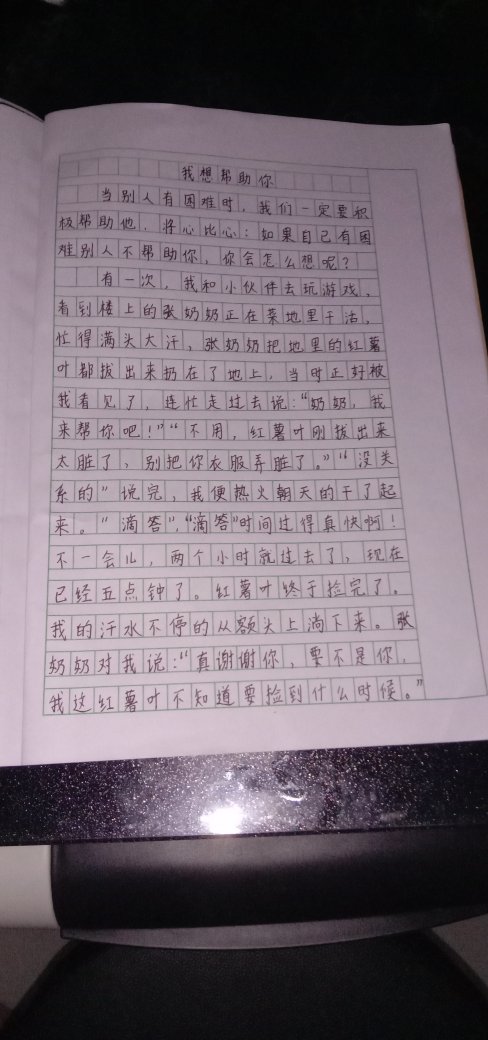 我想帮助你
当别人有困难时，我们一定要积
极帮助他，将心比心：如果自己有困
难别人不帮助你，你会怎么想呢？
有一次，我和小伙伴去玩游戏，
看到楼上的张奶奶正在菜地里干活，
忙得满头大汗，张奶奶把地里的红薯
叶都拔出来扔在了地上，当时正好被
我看见了，连忙走过去说：“奶奶，我
来帮你吧！”“不用，红薯叶刚拔出来
太脏了，别把你衣服弄脏了。”“没关
系的”说完，我便热火朝天的干了起
来。“滴答”，“滴答”时间过得真快啊！
不一会儿，两个小时就过去了，现在
已经五点钟了。红薯叶终于捡完了。
我的汗水不停的从额头上淌下来。张
奶奶对我说：“真谢谢你，要不是你，
我这红薯叶不知道要捡到什么时候。”